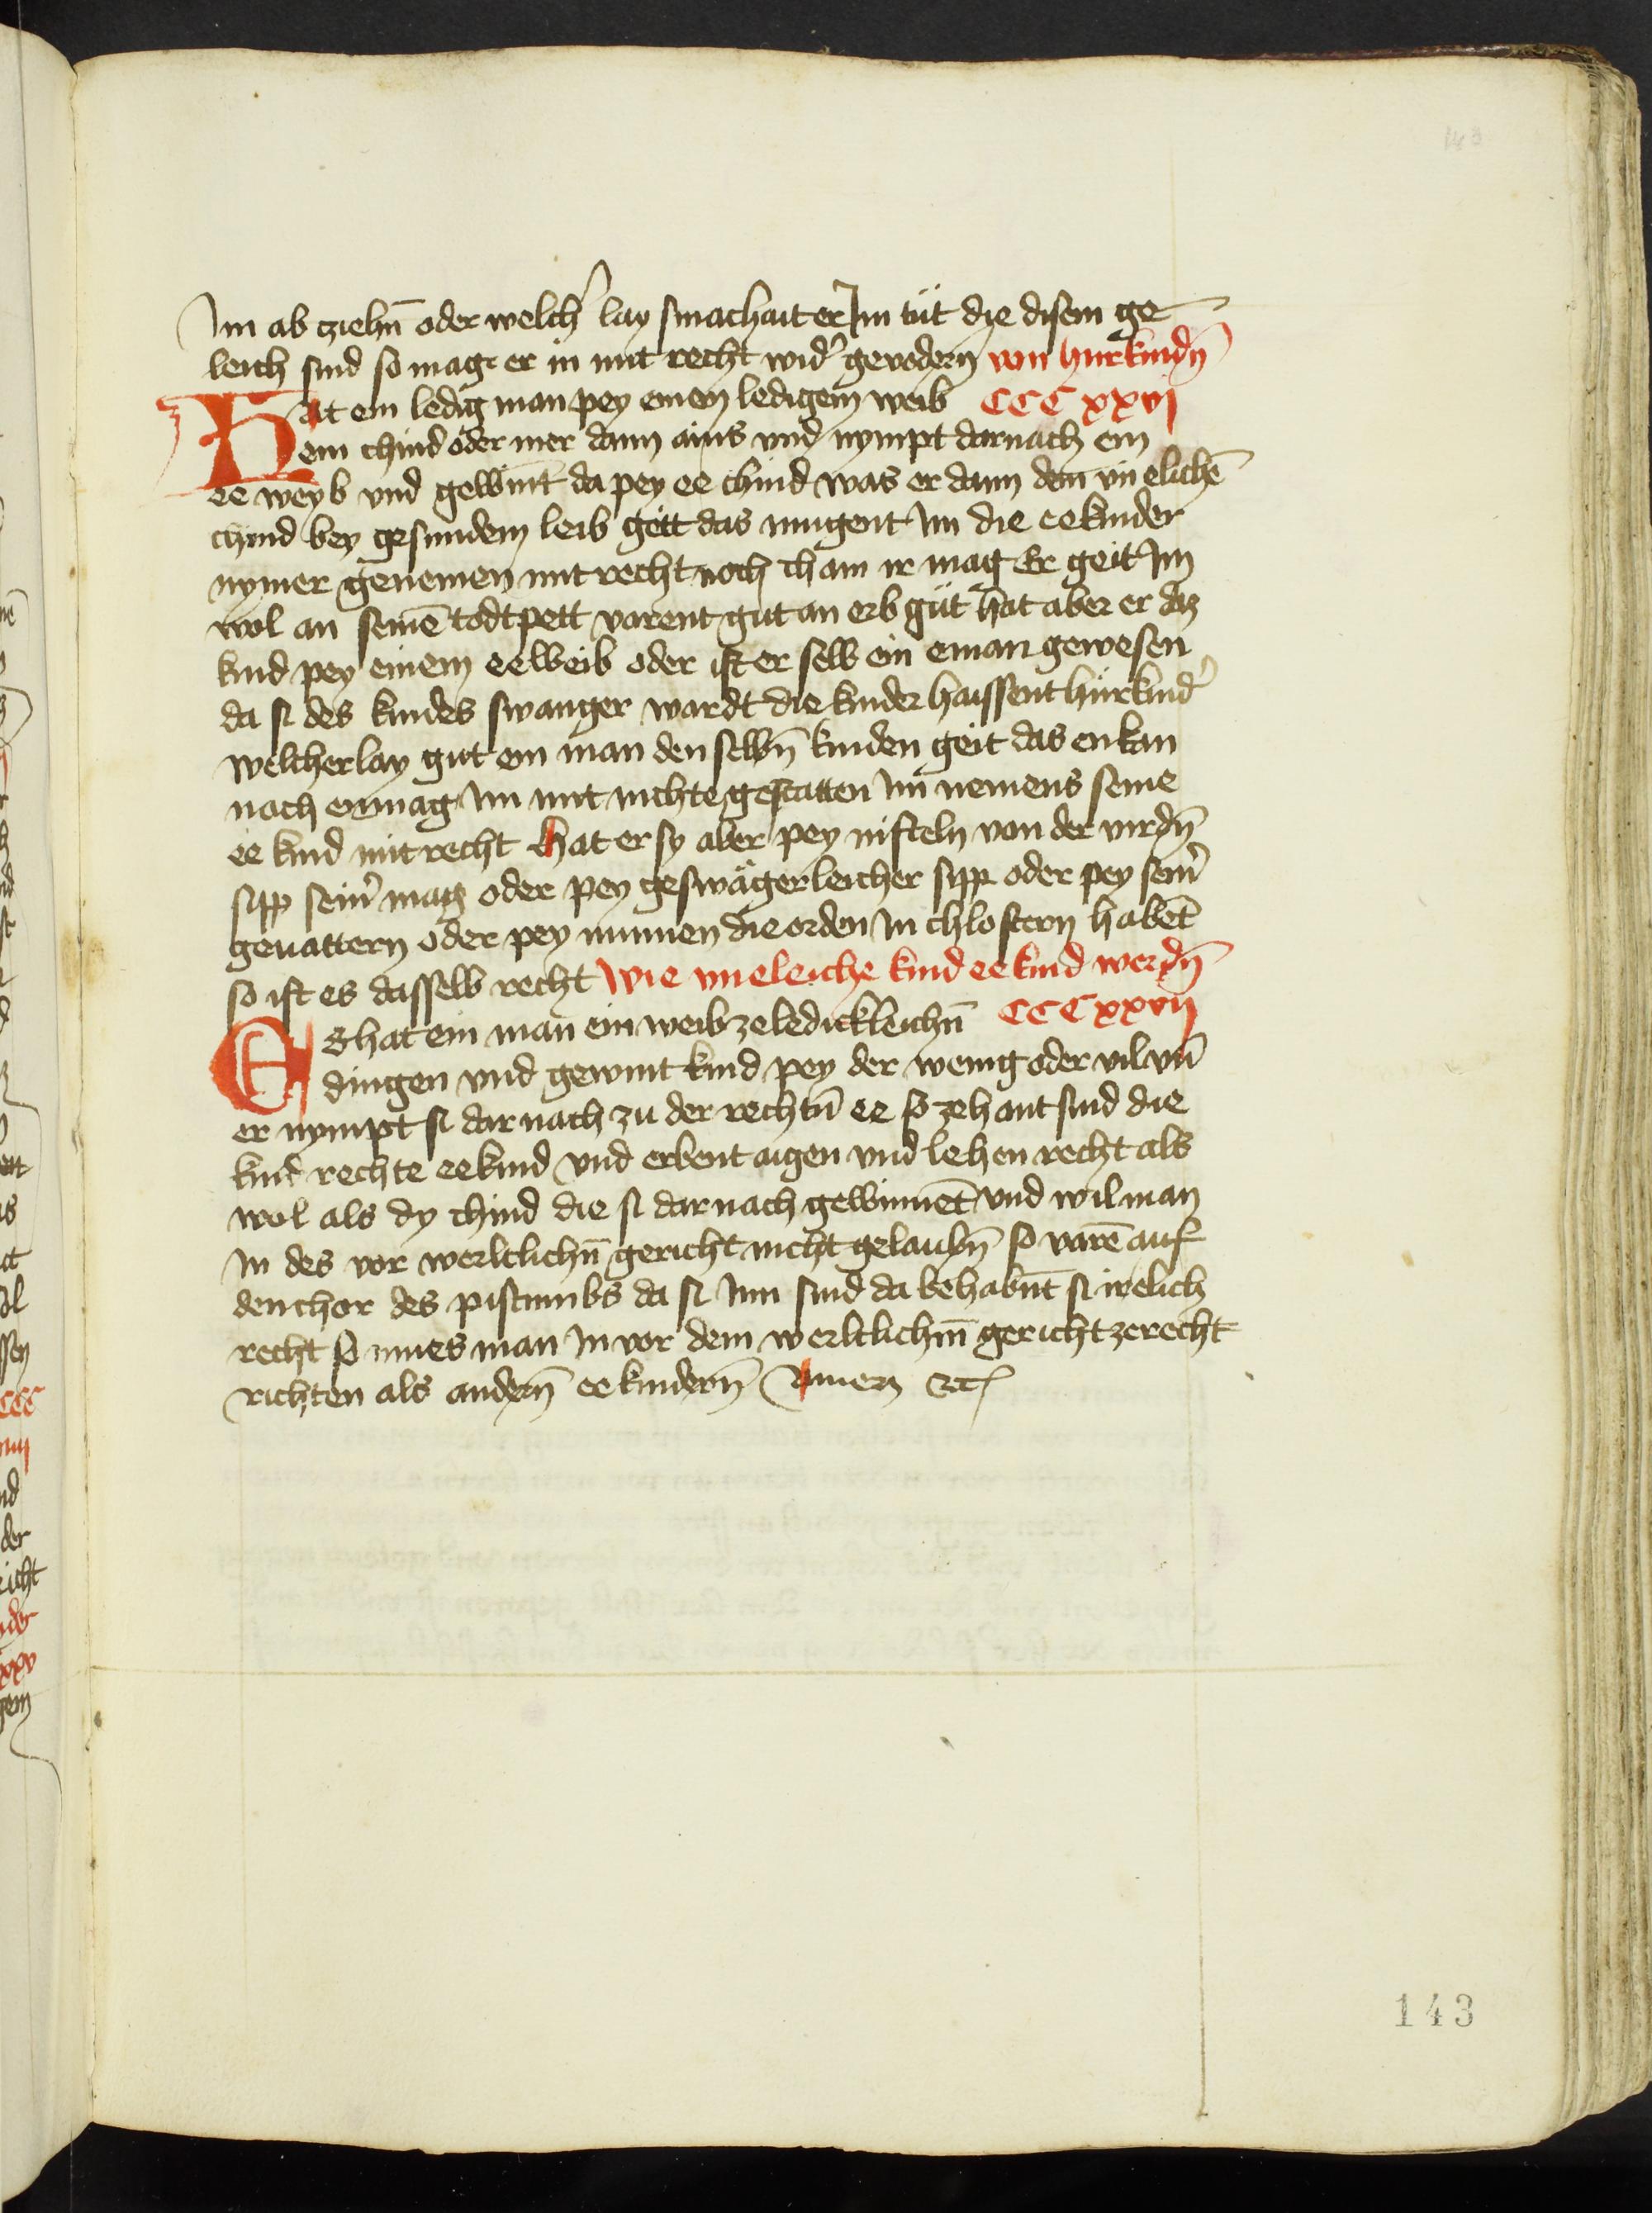 Im ab ziehn̄ oder welch̓ lay smachait er Im tüt die disem ge
leich sind so mag er in mit recht wid̓ gevodern̄ von hurkindn̄
Hat ein ledig man pey einen ledigem weib CCCxxvj
ein chind oder mer dann ains vnd nympt darnach ein
ee weyb vnd gewint da pey ee chind was er dann dem vn elichē
chind bey gesundem leib geitt das mugent Im die ee kinder
nymer genemen mit recht noch cham ir mag Er geit Im
wol an seinē todtpett varent gut an erb güt hat aber er daz
kind pey einem eeweib oder ist er selb ein eman gewesen
da si des kindes swanger wardt die kinder haissent hürkind̓
welcherlay gut ein man den selbn̄ kinden geit das enkan
noch enmag Im mit nichte gestatten im nemens seine
ee kind mit recht hat er sy aber pey nifteln von der virdn̄
sipp sein̓ mag oder pey geswägerleicher sipp oder pey sein̓
geuattern oder pey nunnen die orden In chlostern habēt
so ist es dasselb recht wie vneleiche kind ee kind werdn̄
Es hat ein man ein weib ze ledickleichn̄ CCCxxvij
dingen vnd gewint kind pey der wenig oder vil vn̄
er nympt si dar nach zu der rechtn̄ ee so zehant sind die
kind rechte eekind vnd erbent aigen vnd lehen recht als
wol als dy chind die si dar nach gewinnēt vnd wil man
In des vor werltlichn̄ gericht nicht gelaubn̄ so varē auf
den chor des pistumbs da si Inn sind da behabn̄t si irelich
recht so mues man In vor dem werltlichm̄ gericht ze recht
richten als andern̄ ee kindern̄ Amen ⁊c̄
143
143